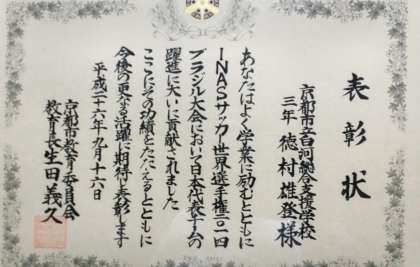 表彰状
京都市立白河総合支援学校
三年 徳村雄登様
あなたはよく学業に励むとともに
INASサッカー世界選手権二〇一四
ブラジル大会において日本代表チームの
躍進に大いに貢献されました
ここにその功績をたたえるとともに
今後の更なる活躍に期待し表彰します
平成二十六年九月十六日
京都市教育委員会
教育長 生田義久